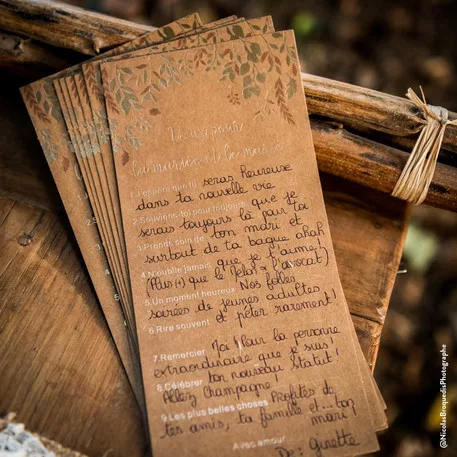 Vœux pour
la mariée et le marié
1.J'espère que tu seras heureuse
dans ta nouvelle vie
2.Souviens-toi pour toujours que je
serais toujours là pour toi
3.Prends soin de ton mari et
surtout de ta bague ahah
4.N'oublie jamais que je t'aime!
(Plus (+) que le Pelot l'avocat)
5.Un moment heureux Nos folles
soirées de jeunes adultes
6.Rire souvent et péter rarement!
7.Remercier Moi! Pour la personne
extraordinaire que je suis!
8.Célébrer ton nouveau statut!
Allez, Champagne!
9.Les plus belles choses Profites de
tes amis, ta famille et... ton
mari
Avec amour
De: Ginette
@NicolasBroquedisPhotographe